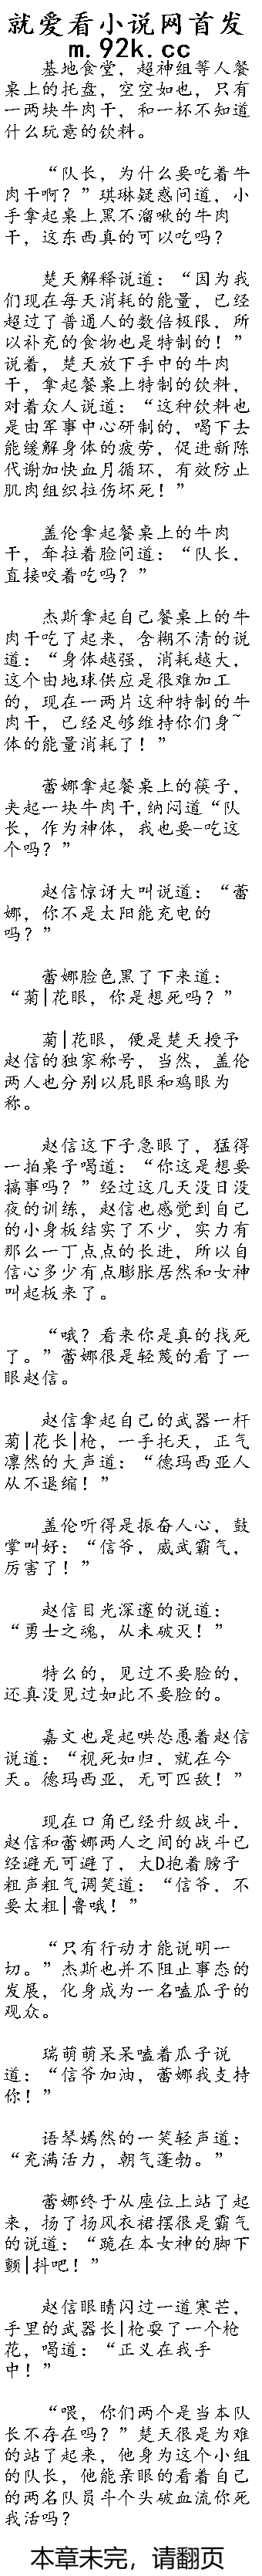 就爱看小说网首发
m.92k.cc
基地食堂，超神组等人餐
桌上的托盘，空空如也，只有
一两块牛肉干，和一杯不知道
什么玩意的饮料。
“队长，为什么要吃着牛
肉干啊？”琪琳疑惑问道，小
手拿起桌上黑不溜啾的牛肉
干，这东西真的可以吃吗？
楚天解释说道：“因为我
们现在每天消耗的能量，已经
超过了普通人的数倍极限，所
以补充的食物也是特制的！”
说着，楚天放下手中的牛肉
干，拿起餐桌上特制的饮料，
对着众人说道：“这种饮料也
是由军事中心研制的，喝下去
能缓解身体的疲劳，促进新陈
代谢加快血月循环，有效防止
肌肉组织拉伤坏死！”
盖伦拿起餐桌上的牛肉
干，耷拉着脸问道：“队长，
直接咬着吃吗？”
杰斯拿起自己餐桌上的牛
肉干吃了起来，含糊不清的说
道：“身体越强，消耗越大，
这个由地球供应是很难加工
的，现在一两片这种特制的牛
肉干，已经足够维持你们身~
体的能量消耗了！”
蕾娜拿起餐桌上的筷子，
夹起一块牛肉干,纳闷道“队
长，作为神体，我也要-吃这
个吗？”
赵信惊讶大叫说道：“蕾
娜，你不是太阳能充电的
吗？”
蕾娜脸色黑了下来道：
“菊|花眼，你是想死吗？”
菊|花眼，便是楚天授予
赵信的独家称号，当然，盖伦
两人也分别以屁眼和鸡眼为
称。
赵信这下子急眼了，猛得
一拍桌子喝道：“你这是想要
搞事吗？”经过这几天没日没
夜的训练，赵信也感觉到自己
的小身板结实了不少，实力有
那么一丁点点的长进，所以自
信心多少有点膨胀居然和女神
叫起板来了。
“哦？看来你是真的找死
了。”蕾娜很是轻蔑的看了一
眼赵信。
赵信拿起自己的武器一杆
菊|花长|枪，一手托天，正气
凛然的大声道：“德玛西亚人
从不退缩！”
盖伦听得是振奋人心，鼓
掌叫好：“信爷，威武霸气，
厉害了！”
赵信目光深邃的说道：
“勇士之魂，从未破灭！”
特么的，见过不要脸的，
还真没见过如此不要脸的。
嘉文也是起哄怂恿着赵信
说道：“视死如归，就在今
天。德玛西亚，无可匹敌！”
现在口角已经升级战斗，
赵信和蕾娜两人之间的战斗已
经避无可避了，大D抱着膀子
粗声粗气调笑道：“信爷，不
要太粗|鲁哦！”
“只有行动才能说明一
切。”杰斯也并不阻止事态的
发展，化身成为一名嗑瓜子的
观众。
瑞萌萌呆呆嗑着瓜子说
道：“信爷加油，蕾娜我支持
你！”
语琴嫣然的一笑轻声道：
“充满活力，朝气蓬勃。”
蕾娜终于从座位上站了起
来，扬了扬风衣裙摆很是霸气
的说道：“跪在本女神的脚下
颤|抖吧！”
赵信眼睛闪过一道寒芒，
手里的武器长|枪耍了一个枪
花，喝道：“正义在我手
中！”
“喂，你们两个是当本队
长不存在吗？”楚天很是为难
的站了起来，他身为这个小组
的队长，他能亲眼的看着自己
的两名队员斗个头破血流你死
我活吗？
本章未完，请翻页